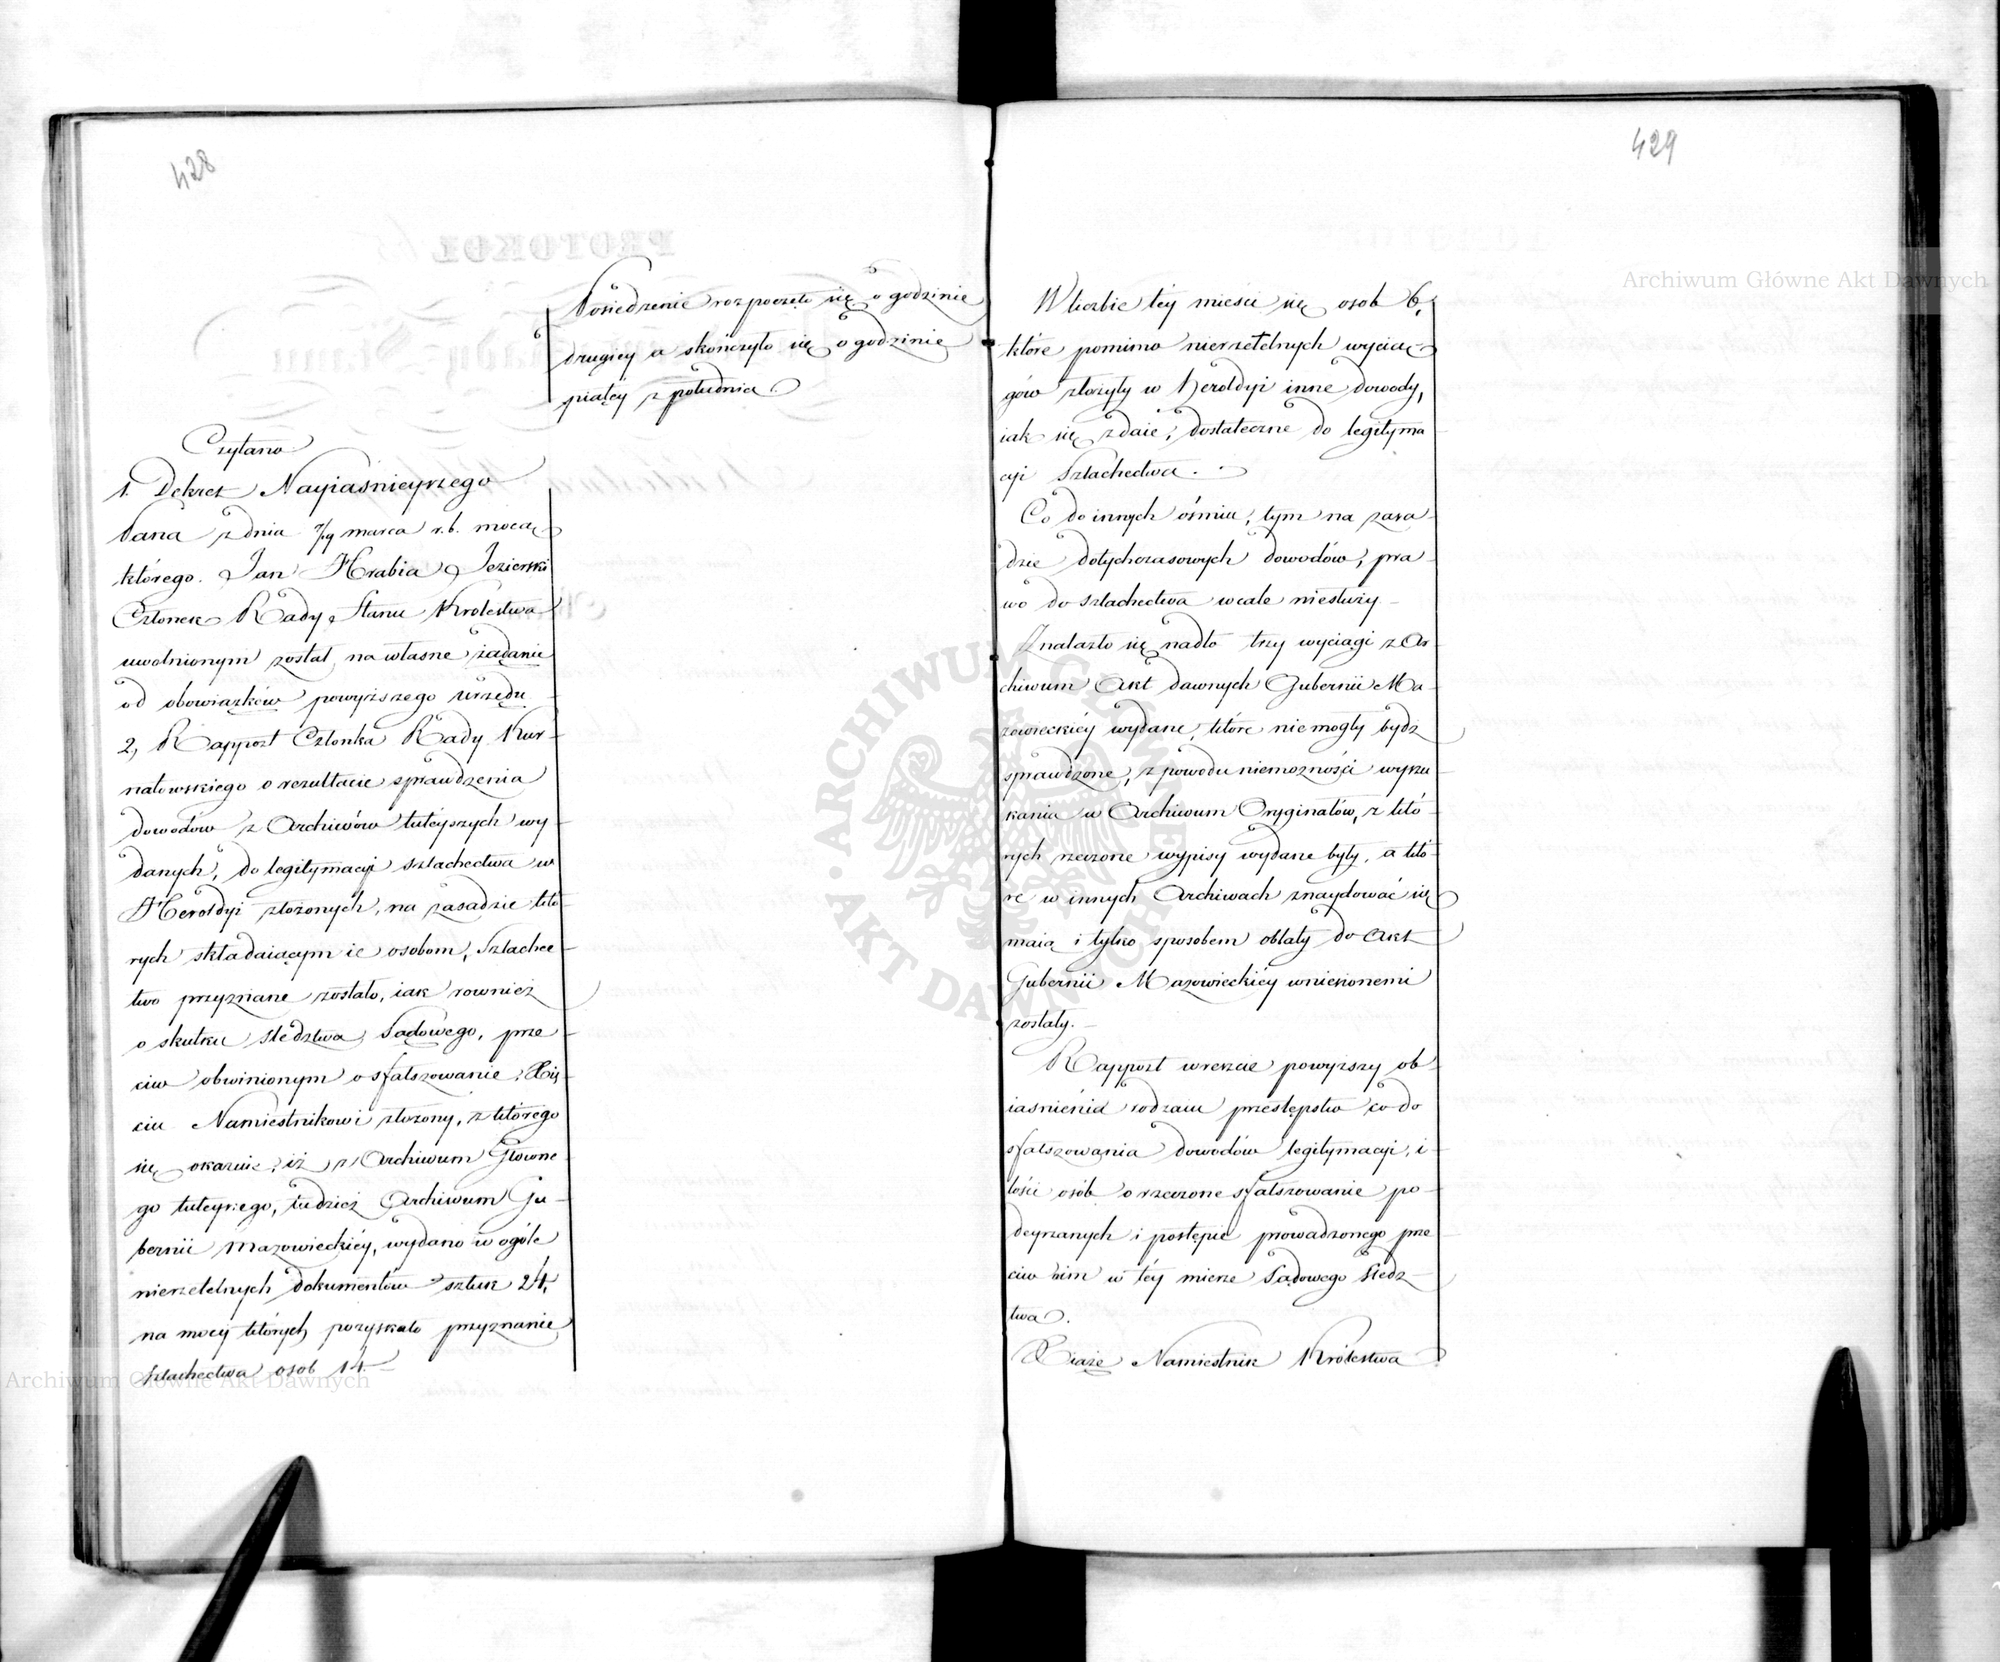 428
Posiedzenie rozpoczęło się o godzinie
drugiey a skończyło się o godzinie
piątéy z południa.
Czytano
1. Dekret Nayiaśnieyszego
Pana z dnia 7/19 marca r. b. mocą
którego Jan Hrabia Jezierski
Członek Rady Stanu Królestwa
uwolnionym został na własne żądanie
od obowiązków powyższego urzędu
2, Rapport Członka Rady Kur-
natowskiego o rezultacie sprawdzenia
dowodów z Archiwów tuteyszych wy-
danych, do legitymacyi szlachectwa w
Heroldyi złożonych, na zasadzie któ-
rych składaiącym ie osobom, Szlachec-
two przyznane zostało, iak rownież
o skutku śledztwa Sądowego, prze-
ciw obwinionym o sfałszowanie, Xię-
ciu Namiestnikowi złożony, z którego
się okazuie, iż z Archiwum Głowne-
go tuteyszego, tudzież Archiwum Gu-
bernii Mazowieckiéy, wydano w ogóle
nierzetelnych dokumentów sztuk 24,
na mocy których pozyskało przyznanie
szlachectwa osob 14.
429
W liczbie téy mieści się osob 6,
które pomimo nierzetelnych wycią-
gów złożyły w Heroldyi inne dowody,
iak się zdaie, dostateczne do legityma
cyi Szlachectwa.
Co do innych ośmiu, tym na zasa-
dzie dotychczasowych dowodów, pra-
wo do szlachectwa wcale niesłuży.
Znalazło się nadto trzy wyciągi z Ar-
chiwum Akt dawnych Gubernii Ma-
zowieckiéy wydane, które niemogły bydz
sprawdzone, z powodu niemożności wyszu
kania w Archiwum Oryginałów, z któ-
rych rzeczone wypisy wydane były, a któ-
re w innych Archiwach znaydować się
maią i tylko sposobem oblaty do Akt
Gubernii Mazowieckiéy wniesionemi
zostały.
Rapport wreszcie powyższy ob-
iaśnienia rodzaiu przestępstw co do
sfałszowania dowodów legitymacyi, i-
lości osób o rzeczone sfałszowanie po-
deyrzanych i postępie prowadzonego prze
ciw nim w téy mierze Sądowego śledz-
twa.
Xiąże Namiestnik Królestwa
Archiwum Główne Akt Dawnych
Archiwum Główne Akt Dawnych
ARCHIWUM GŁÓWNE AKT DAWNYCH